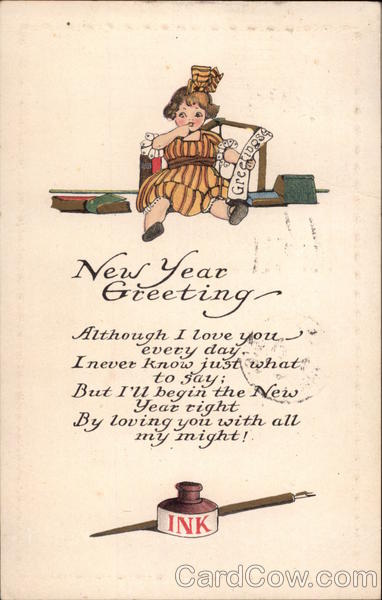 Greetings
New Year
Greeting
Although I love you
every day.
I never know just what
to say;
But I'll begin the New
Year right
By loving you with all
my might!
INK
CardCow.com